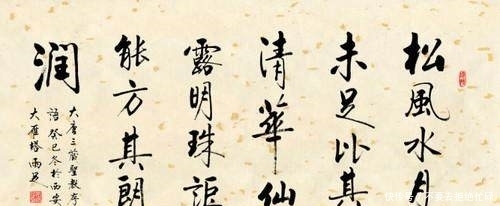 松風水月
未足比其
清華仙
露明珠詎
能方其朗
潤
大唐三藏聖教序
語癸巳冬於西安
大雁塔